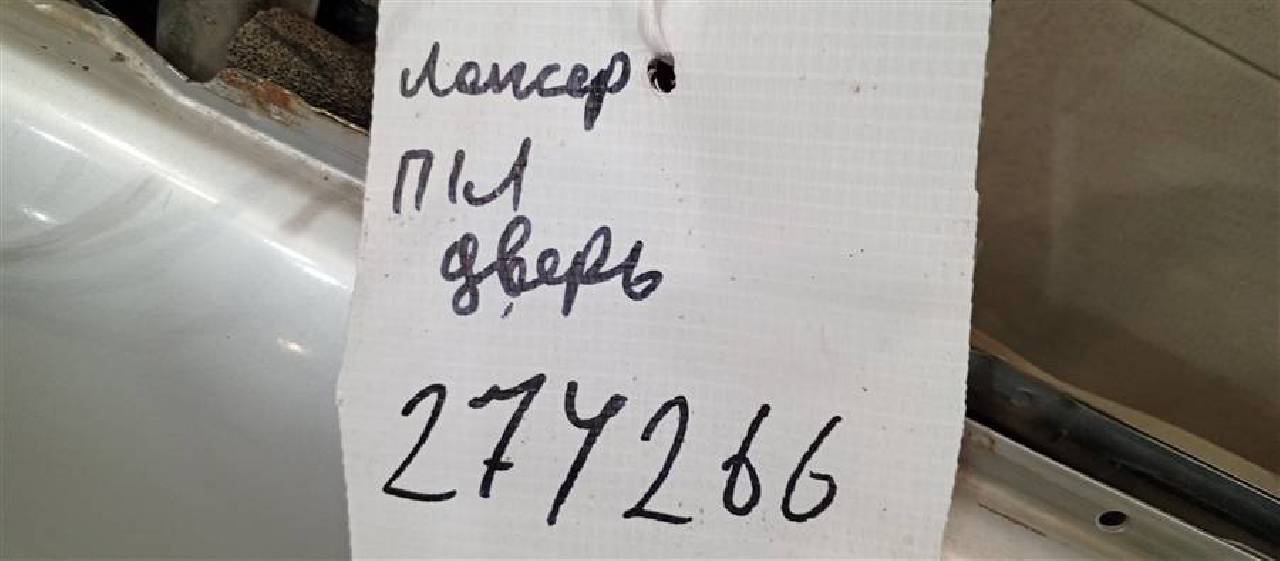 Лансер
ПЛ
дверь
274266